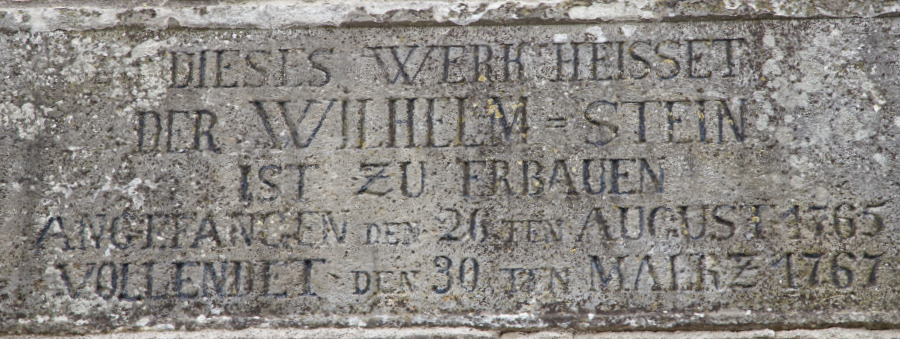 DIESES WERK HEISSET
DER WILHELM = STEIN
IST ZU ERBAUEN
ANGEFANGEN DEN 26 TEN AUGUST 1765
VOLLENDET DEN 30 TEN MAERZ 1767